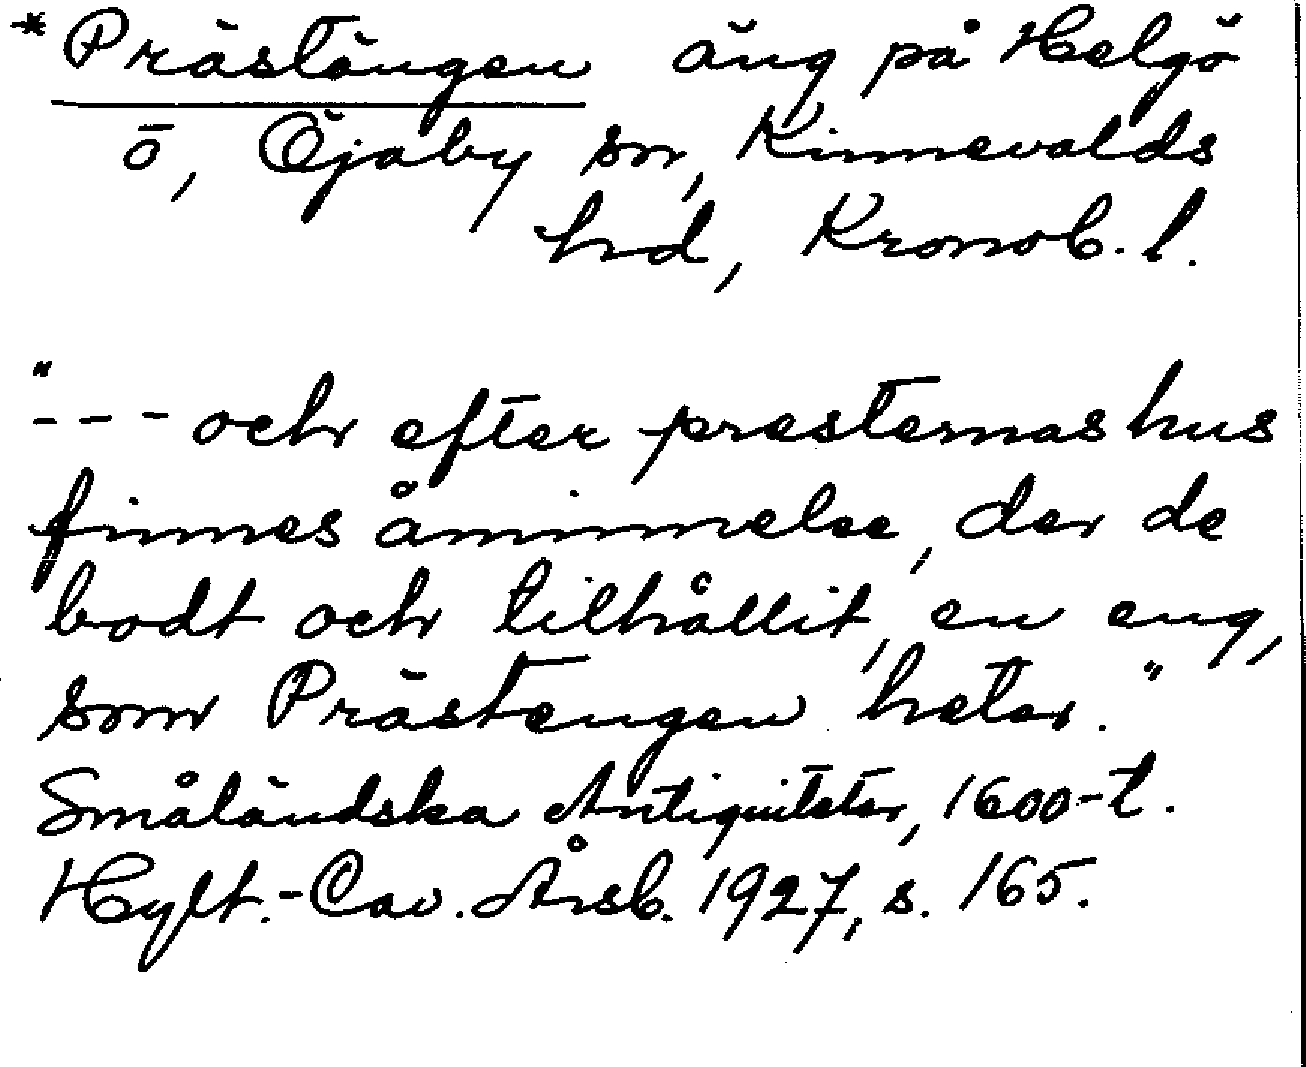 * Prästängen äng på Helgö
ö, Öjaby sn, Kinnevalds
hd, Kronob. l.
"--- och efter presternas hus
finnes åminnelse, der de
bodt och tilhållit, en eng,
som Prästengen heter."
Småländska Antiquiteter, 1600-t.
Hylt.-Cav. Årsb. 1927, s. 165.